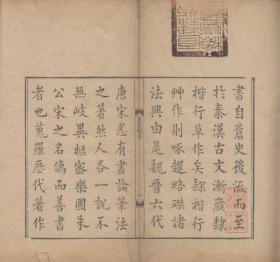 書自蒼史後㳅而至
於秦漢古文漸廢隸
楷行草作矣諜楷行
艸作則啄趯略磔諸
法興由是魏晉六代
唐宋悉有書論筆法
之著然人各一說不
無岐異樞密樂圃朱
公宋之名儒而善書
者也蒐羅歷代著作